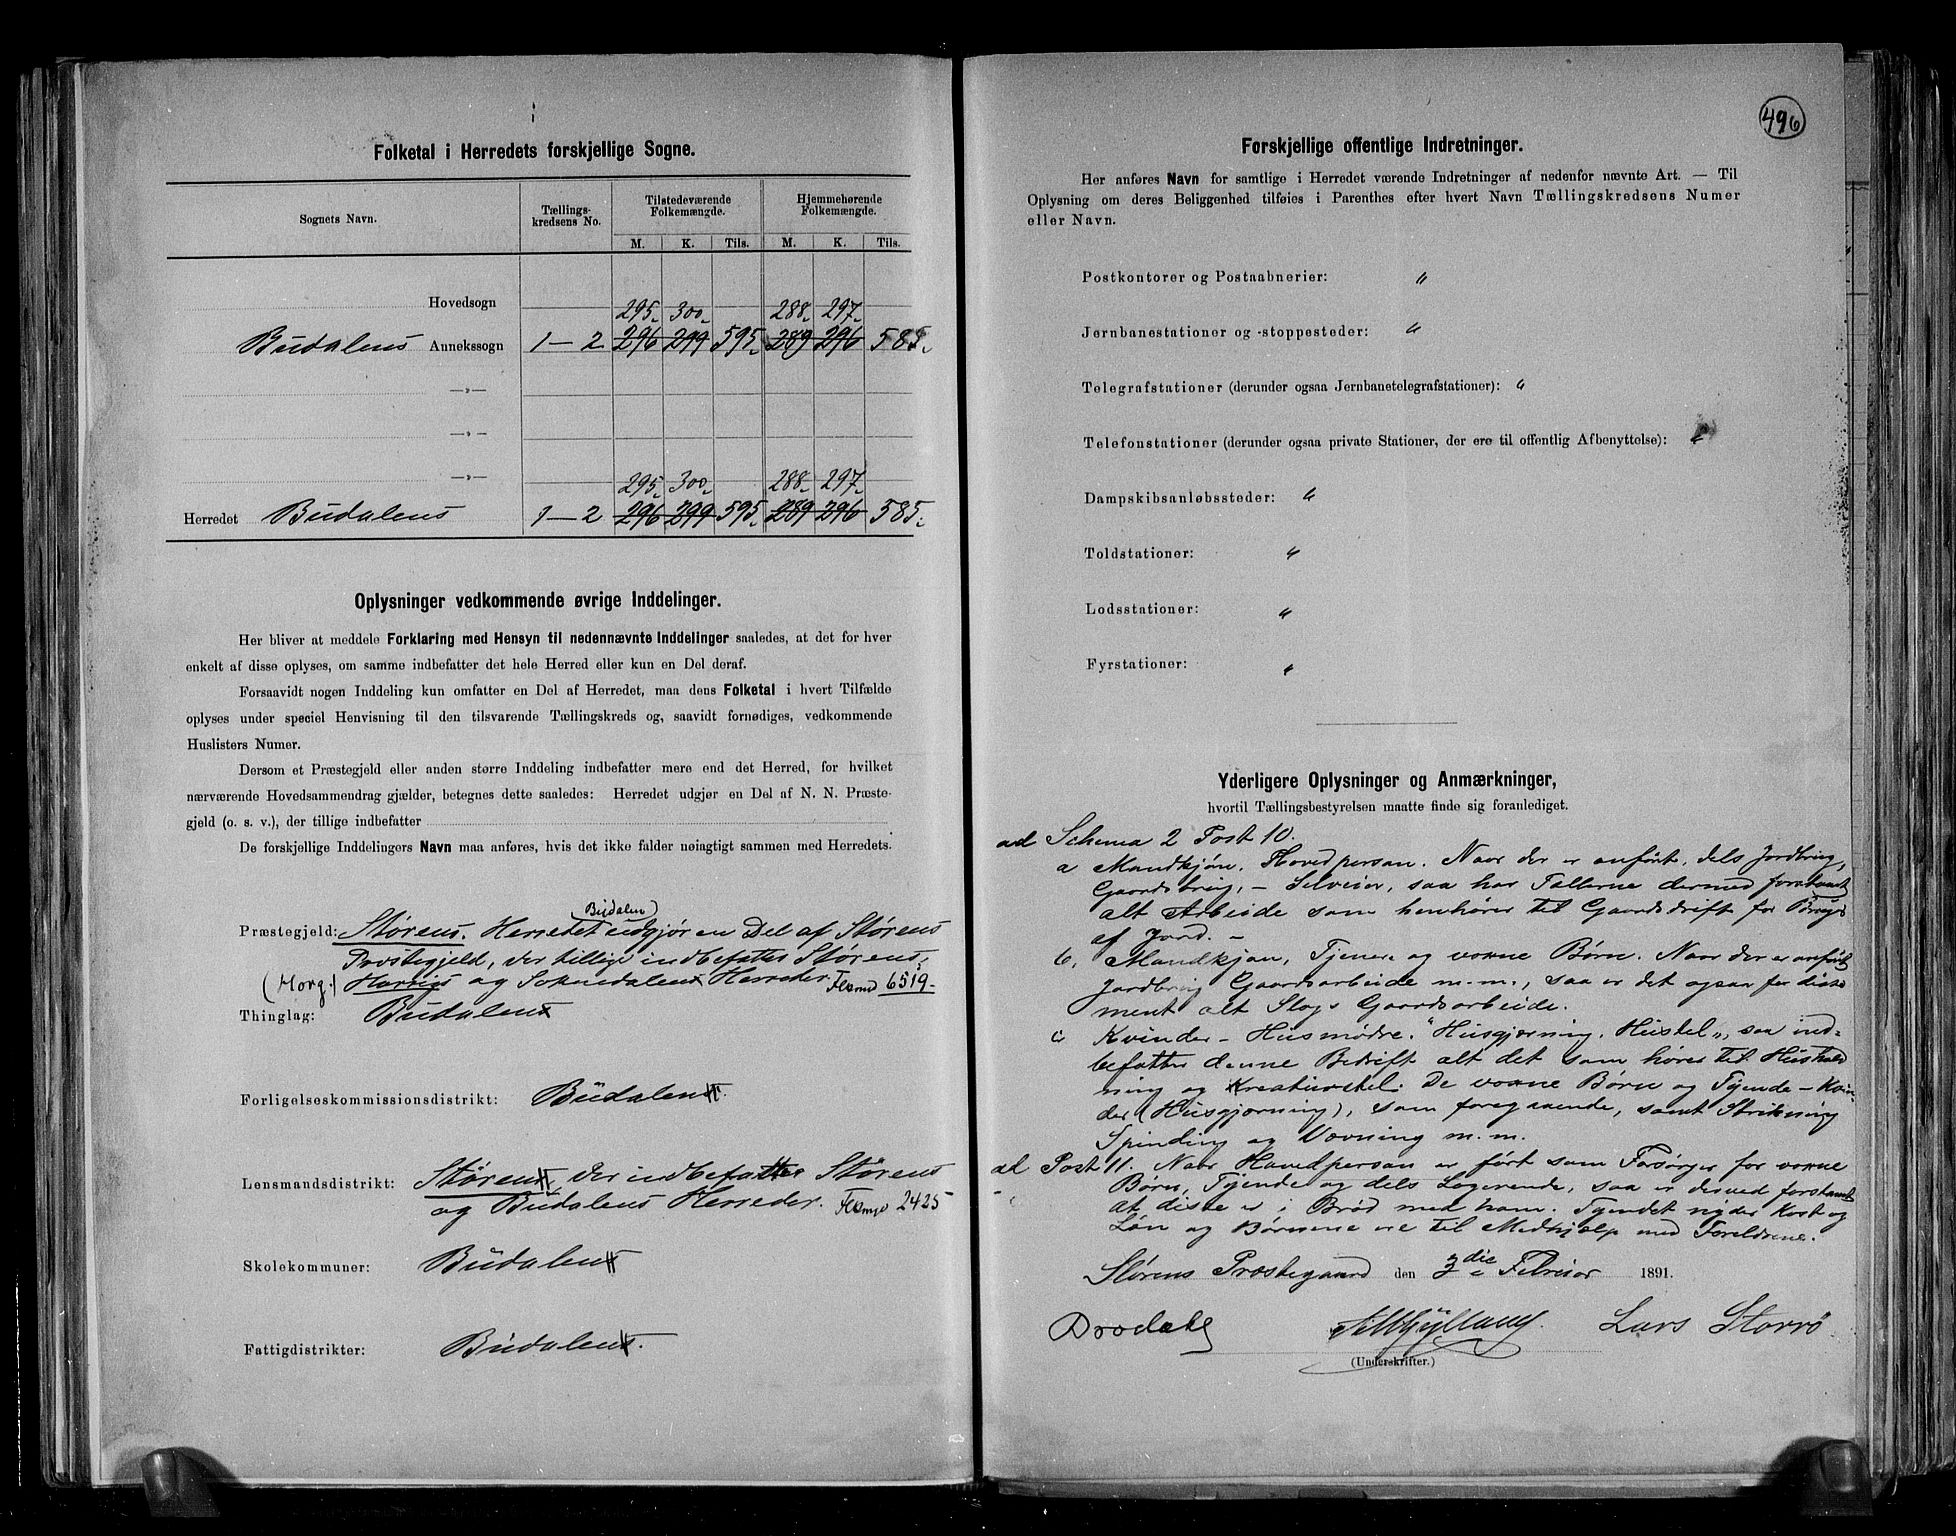 Folketal i Herredets forskjellige Sogne.
Sognets Navn. Tællings-kredsens No. Tilstedeværende Folkemængde. Hjemmehørende Folkemængde.
M. K. Tils. M. K. Tils.
Hovedsogn
295 300 288 297
Budalens Annekssogn 1-2 296 299 595 289 296 585
—„—
—„—
—„—
295 300 288 297
Herredet Budalens 1-2 296 299 595 289 296 585
Oplysninger vedkommende øvrige Inddelinger.
Her bliver at meddele Forklaring med Hensyn til nedennævnte Inddelinger saaledes, at det for hver
enkelt af disse oplyses, om samme indbefatter det hele Herred eller kun en Del deraf.
Forsaavidt nogen Inddeling kun omfatter en Del af Herredet, maa dens Folketal i hvert Tilfælde
oplyses under speciel Henvisning til den tilsvarende Tællingskreds og, saavidt fornødiges, vedkommende
Huslisters Numer.
Dersom et Præstegjeld eller anden større Inddeling indbefatter mere end det Herred, for hvilket
nærværende Hovedsammendrag gjælder, betegnes dette saaledes: Herredet udgjør en Del af N. N. Præste-
gjeld (o. s. v.), der tillige indbefatter
De forskjellige Inddelingers Navn maa anføres, hvis det ikke falder nøiagtigt sammen med Herredets.
Budalen
Præstegjeld: Størens. Herredet udgjør en Del af Størens
Præstegjeld, der tillige indbefatter Størens,
(Horg.) Horrigs og Soknedalens Herreder. Flkmd 6519
Thinglag: Budalens
Forligelseskommissionsdistrikt: Budalens.
Lensmandsdistrikt: Størens, der indbefatter Størens
og Budalens Herreder. Flkmgd 2425
Skolekommuner: Budalens
Fattigdistrikter: Budalens.
496
Forskjellige offentlige Indretninger.
Her anføres Navn for samtlige i Herredet værende Indretninger af nedenfor nævnte Art. — Til
Oplysning om deres Beliggenhed tilføies i Parenthes efter hvert Navn Tællingskredsens Numer
eller Navn.
Postkontorer og Postaabnerier: "
Jernbanestationer og -stoppesteder: "
Telegrafstationer (derunder ogsaa Jernbanetelegrafstationer): "
Telefonstationer (derunder ogsaa private Stationer, der ere til offentlig Afbenyttelse): "
Dampskibsanløbssteder: "
Toldstationer: "
Lodsstationer: "
Fyrstationer: "
Yderligere Oplysninger og Anmærkninger,
hvortil Tællingsbestyrelsen maatte finde sig foranlediget.
ad Schema 2 Post 10.
a Mandkjøn. Hovedperson. Naar der er anført, dels Jordbrug,
Gaardsbrug, – Selveier, saa har Tællerne dermed forstaaet
alt Arbeide som henhører til Gaardsdrift for Bruger
af Jord. –
b, Mandkjøn, Tjenere og voxne Børn. Naar der er anført
Jordbrug Gaardsarbeide m.m., saa er det ogsaa for disse
ment alt Slags Gaardsarbeide.
c Kvinder – Husmødre. "Husgjerning, Hustel", saa ind-
befatter denne Bedrift alt det som hører til Hushold
ning og Kreaturstel. De voxne Børn og Tjende-Kvin-
der (Husgjerning), som foregaaende, samt Strikning
Spinding og Vævning m.m.
ad Post 11. Naar Hovedperson er ført som Forsørger for voxne
Børn, Tjende og dels Logerende, saa er derved forstaaet
at disse er i Brød med ham. Tjendet nyder Kost og
Løn og Børnene ere til Medhjælp med Forældrene.
Størens Præstegaard den 3die Februar 1891.
Lars Storrø
(Underskrifter.)